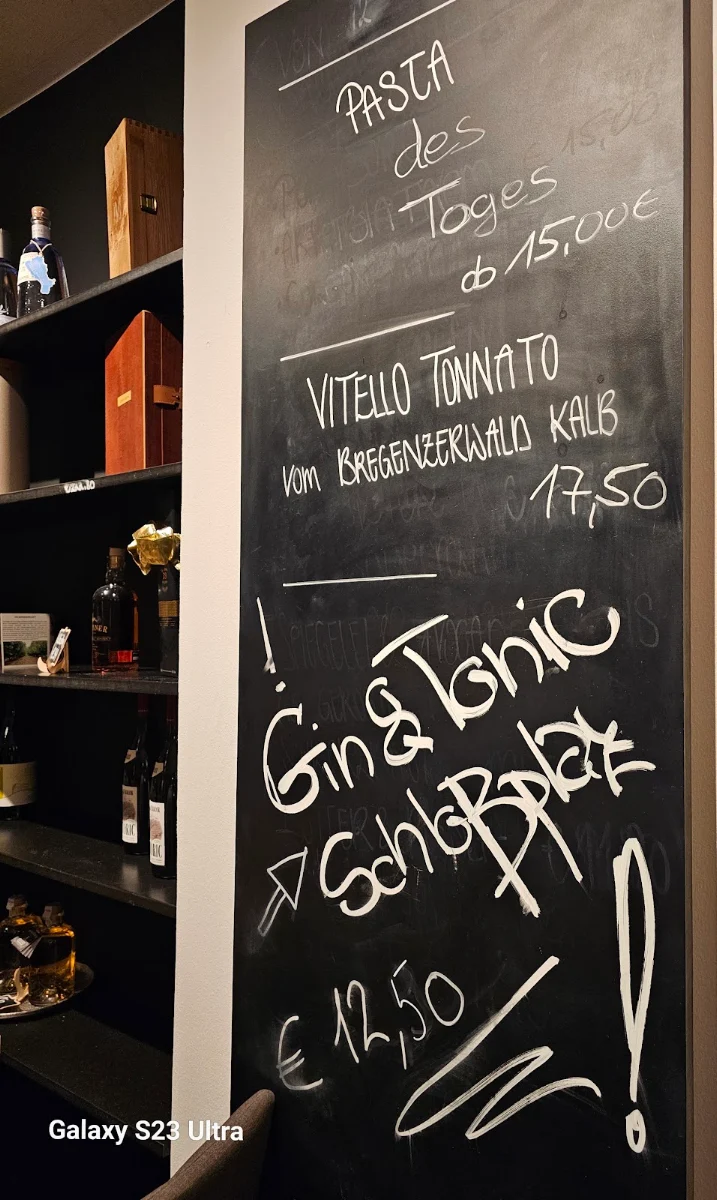 PASTA
des
Tages
ab 15,00€
VITELLO TONNATO
vom BREGENZERWALD KALB
17,50
!
Gin & Tonic
Schloßplatz
€ 12,50
!
Galaxy S23 Ultra